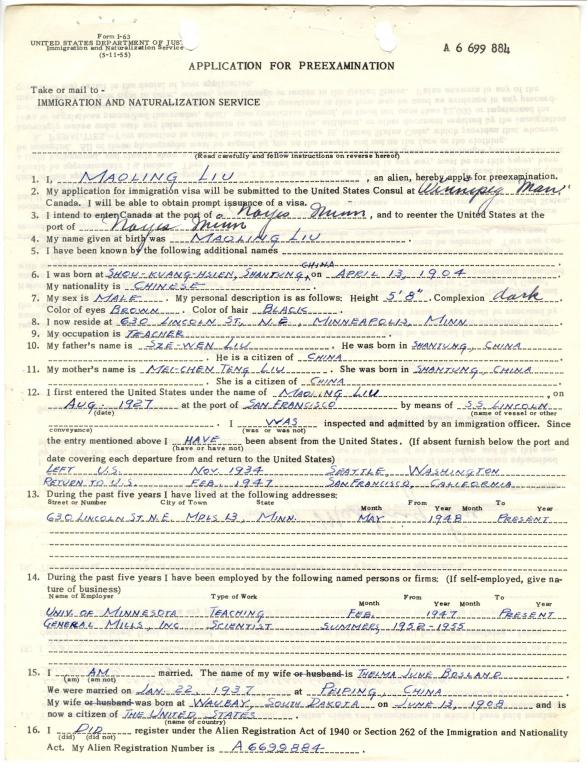 Form I-63
UNITED STATES DEPARTMENT OF JUS
Immigration and Naturalization Service
(5-11-55)
A 6 699 884
APPLICATION FOR PREEXAMINATION
Take or mail to -
IMMIGRATION AND NATURALIZATION SERVICE
(Read carefully and follow instructions on reverse hereof)
1. I, MAOLING LIU, an alien, hereby apply for preexamination.
2. My application for immigration visa will be submitted to the United States Consul at Winnipeg Man
Canada. I will be able to obtain prompt issuance of a visa.
3. I intend to enter Canada at the port of a Noyes Minn, and to reenter the United States at the
port of Noyes Minn
4. My name given at birth was MAOLING LIU.
5. I have been known by the following additional names
CHINA
6. I was born at SHOU-KUANG-HSIEN, SHANTUNG, on APRIL 13, 1904
My nationality is CHINESE
7. My sex is MALE. My personal description is as follows: Height 5' 8". Complexion dark
Color of eyes BROWN. Color of hair BLACK.
8. I now reside at 630 LINCOLN ST, N.E., MINNEAPOLIS, MINN
9. My occupation is TEACHER
10. My father's name is SZE-WEN LIU. He was born in SHANTUNG, CHINA
. He is a citizen of CHINA
11. My mother's name is MEI-CHEN TENG LIU. She was born in SHANTUNG, CHINA
. She is a citizen of CHINA
12. I first entered the United States under the name of MAOLING LIU, on
AUG. 1927 at the port of SAN FRANCISCO by means of S.S. LINCOLN
(date) (name of vessel or other
. I WAS inspected and admitted by an immigration officer. Since
conveyance) (was or was not)
the entry mentioned above I HAVE been absent from the United States. (If absent furnish below the port and
(have or have not)
date covering each departure from and return to the United States)
LEFT U.S. NOV. 1934 SEATTLE, WASHINGTON
RETURN TO U.S. FEB. 1947 SAN FRANCISCO, CALIFORNIA
13. During the past five years I have lived at the following addresses:
Street or Number City of Town State From To
Month Year Month Year
630 LINCOLN ST. N.E. MPLS 13, MINN. MAY 1948 PRESENT
14. During the past five years I have been employed by the following named persons or firms: (If self-employed, give na-
ture of business)
Name of Employer Type of Work From To
Month Year Month Year
UNIV. OF MINNESOTA TEACHING FEB. 1947 PRESENT
GENERAL MILLS, INC SCIENTIST SUMMERS, 1952-1955
15. I AM married. The name of my wife or husband is THELMA JUNE BOSLAND
(am) (am not)
We were married on JAN. 22, 1937 at PEIPING, CHINA
My wife or husband was born at WAUBAY, SOUTH DAKOTA on JUNE 13, 1908 and is
now a citizen of THE UNITED STATES
(name of country)
16. I DID register under the Alien Registration Act of 1940 or Section 262 of the Immigration and Nationality
(did) (did not)
Act. My Alien Registration Number is A6699884